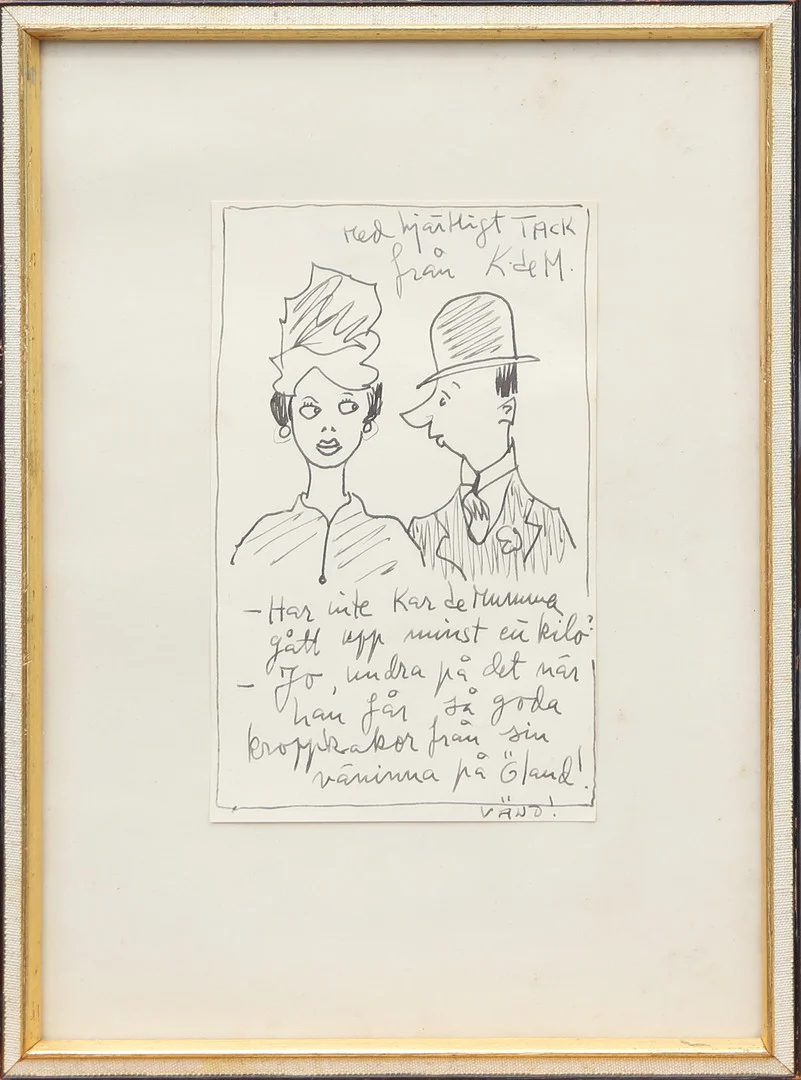 Med hjärtligt TACK
från K.deM.
– Har inte Kar de Mumma
gått upp minst en kilo?
– Jo, undra på det när
han får så goda
kroppkakor från sin
väninna på Öland!
VÄND!